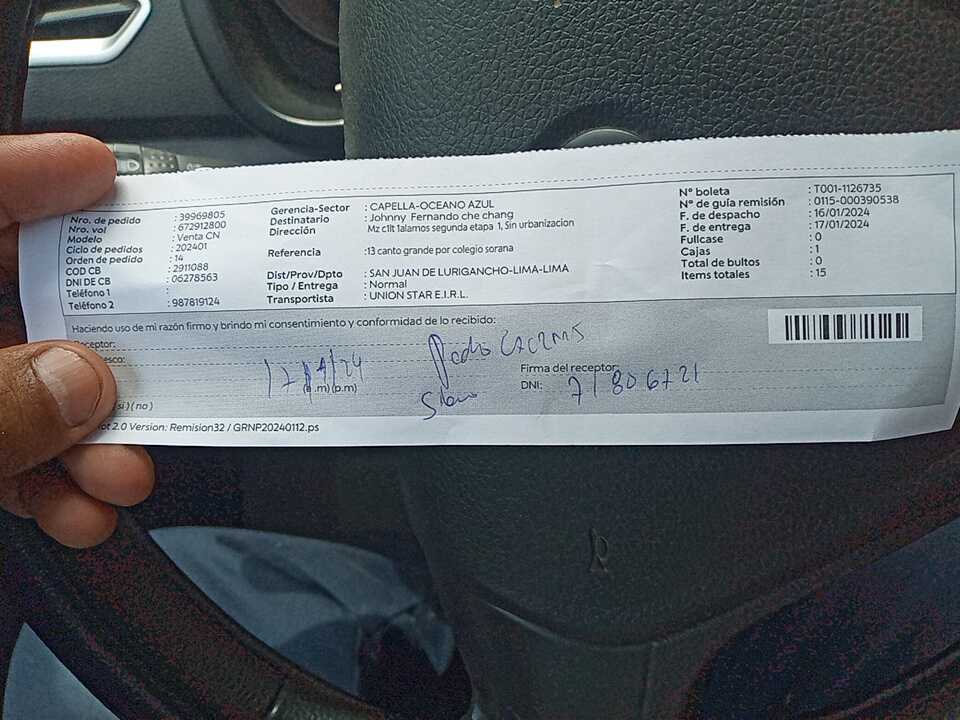 Nro. de pedido : 39969805
Nro. vol : 672912800
Modelo : Venta CN
Ciclo de pedidos : 202401
Orden de pedido : 14
COD CB : 2911088
DNI DE CB : 06278563
Teléfono 1 :
Teléfono 2 : 987819124
Gerencia-Sector : CAPELLA-OCEANO AZUL
Destinatario : Johnny Fernando che chang
Dirección Mz c1lt 1alamos segunda etapa 1, Sin urbanizacion
Referencia :13 canto grande por colegio sorana
Dist/Prov/Dpto : SAN JUAN DE LURIGANCHO-LIMA-LIMA
Tipo / Entrega : Normal
Transportista : UNION STAR E.I.R.L.
N° boleta : T001-1126735
N° de guía remisión : 0115-000390538
F. de despacho : 16/01/2024
F. de entrega : 17/01/2024
Fullcase : 0
Cajas : 1
Total de bultos : 0
Items totales : 15
Haciendo uso de mi razón firmo y brindo mi consentimiento y conformidad de lo recibido:
Receptor:
(a.m) (p.m)
Pedro
Firma del receptor
DNI: 71806721
( si ) ( no )
2.0 Version: Remision32 / GRNP20240112.ps